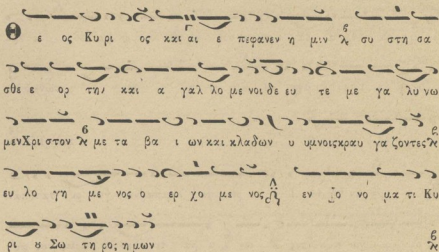 Θ ε ος Κυ ρι ος και αι ε πεφανεν η μιν συ στη σα
σθε ε ορ την και α γαλ λο με νοι δε ευ τε με γα λυ νω
μεν Χρι στον με τα βα ι ων και κλαδων υ υμνοις κραυ γα ζοντες
ευ λο γη με νος ο ερ χο με νος εν ο νο μα τι Κυ
ρι ȣ Σω τη ρο; η μων